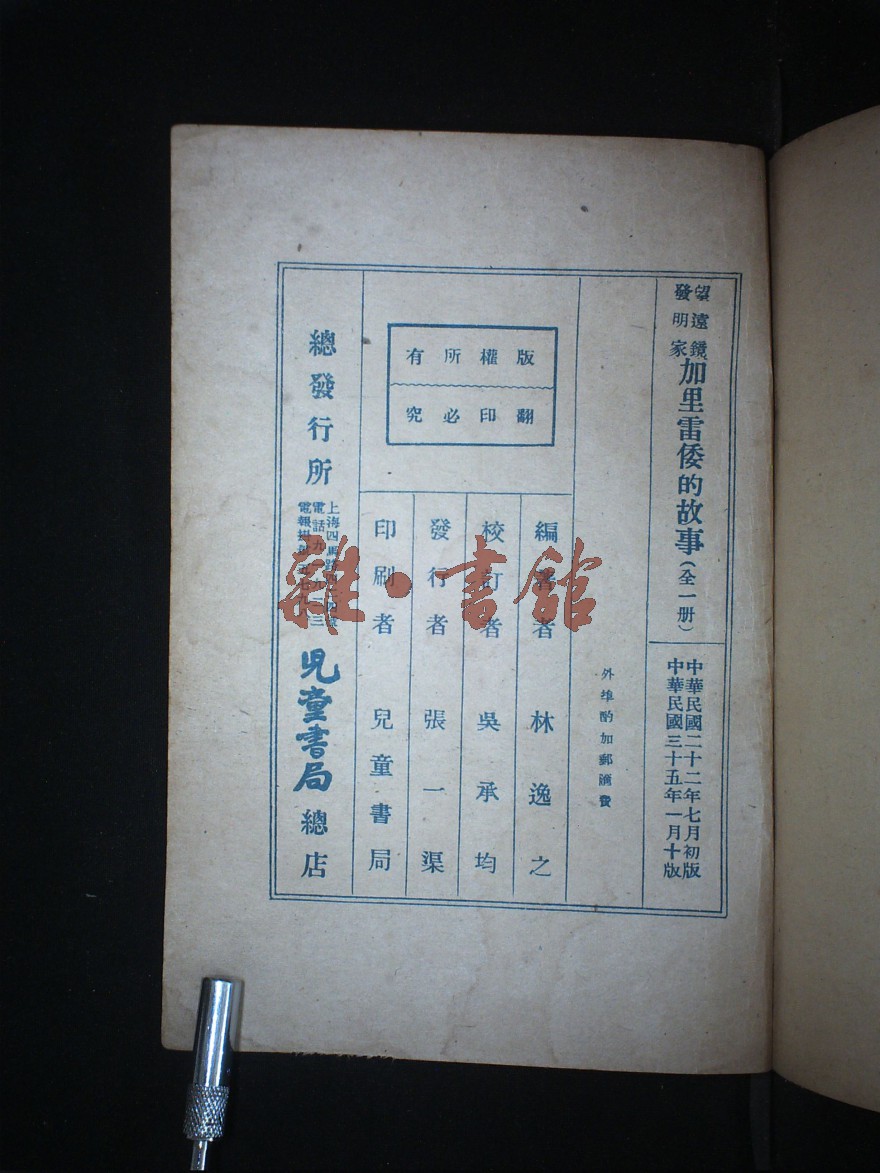 望遠鏡
發明家
加里雷倭的故事(全一册)
中華民國二十二年七月初版
中華民國三十五年一月十版
外埠酌加郵匯費
版權所有
翻印必究
編著者 林逸之
校訂者 吳承均
發行者 張一渠
印刷者 兒童書局
總發行所
上海四馬路
電話九一九二三
電報掛號
兒童書局總店
雜·書館